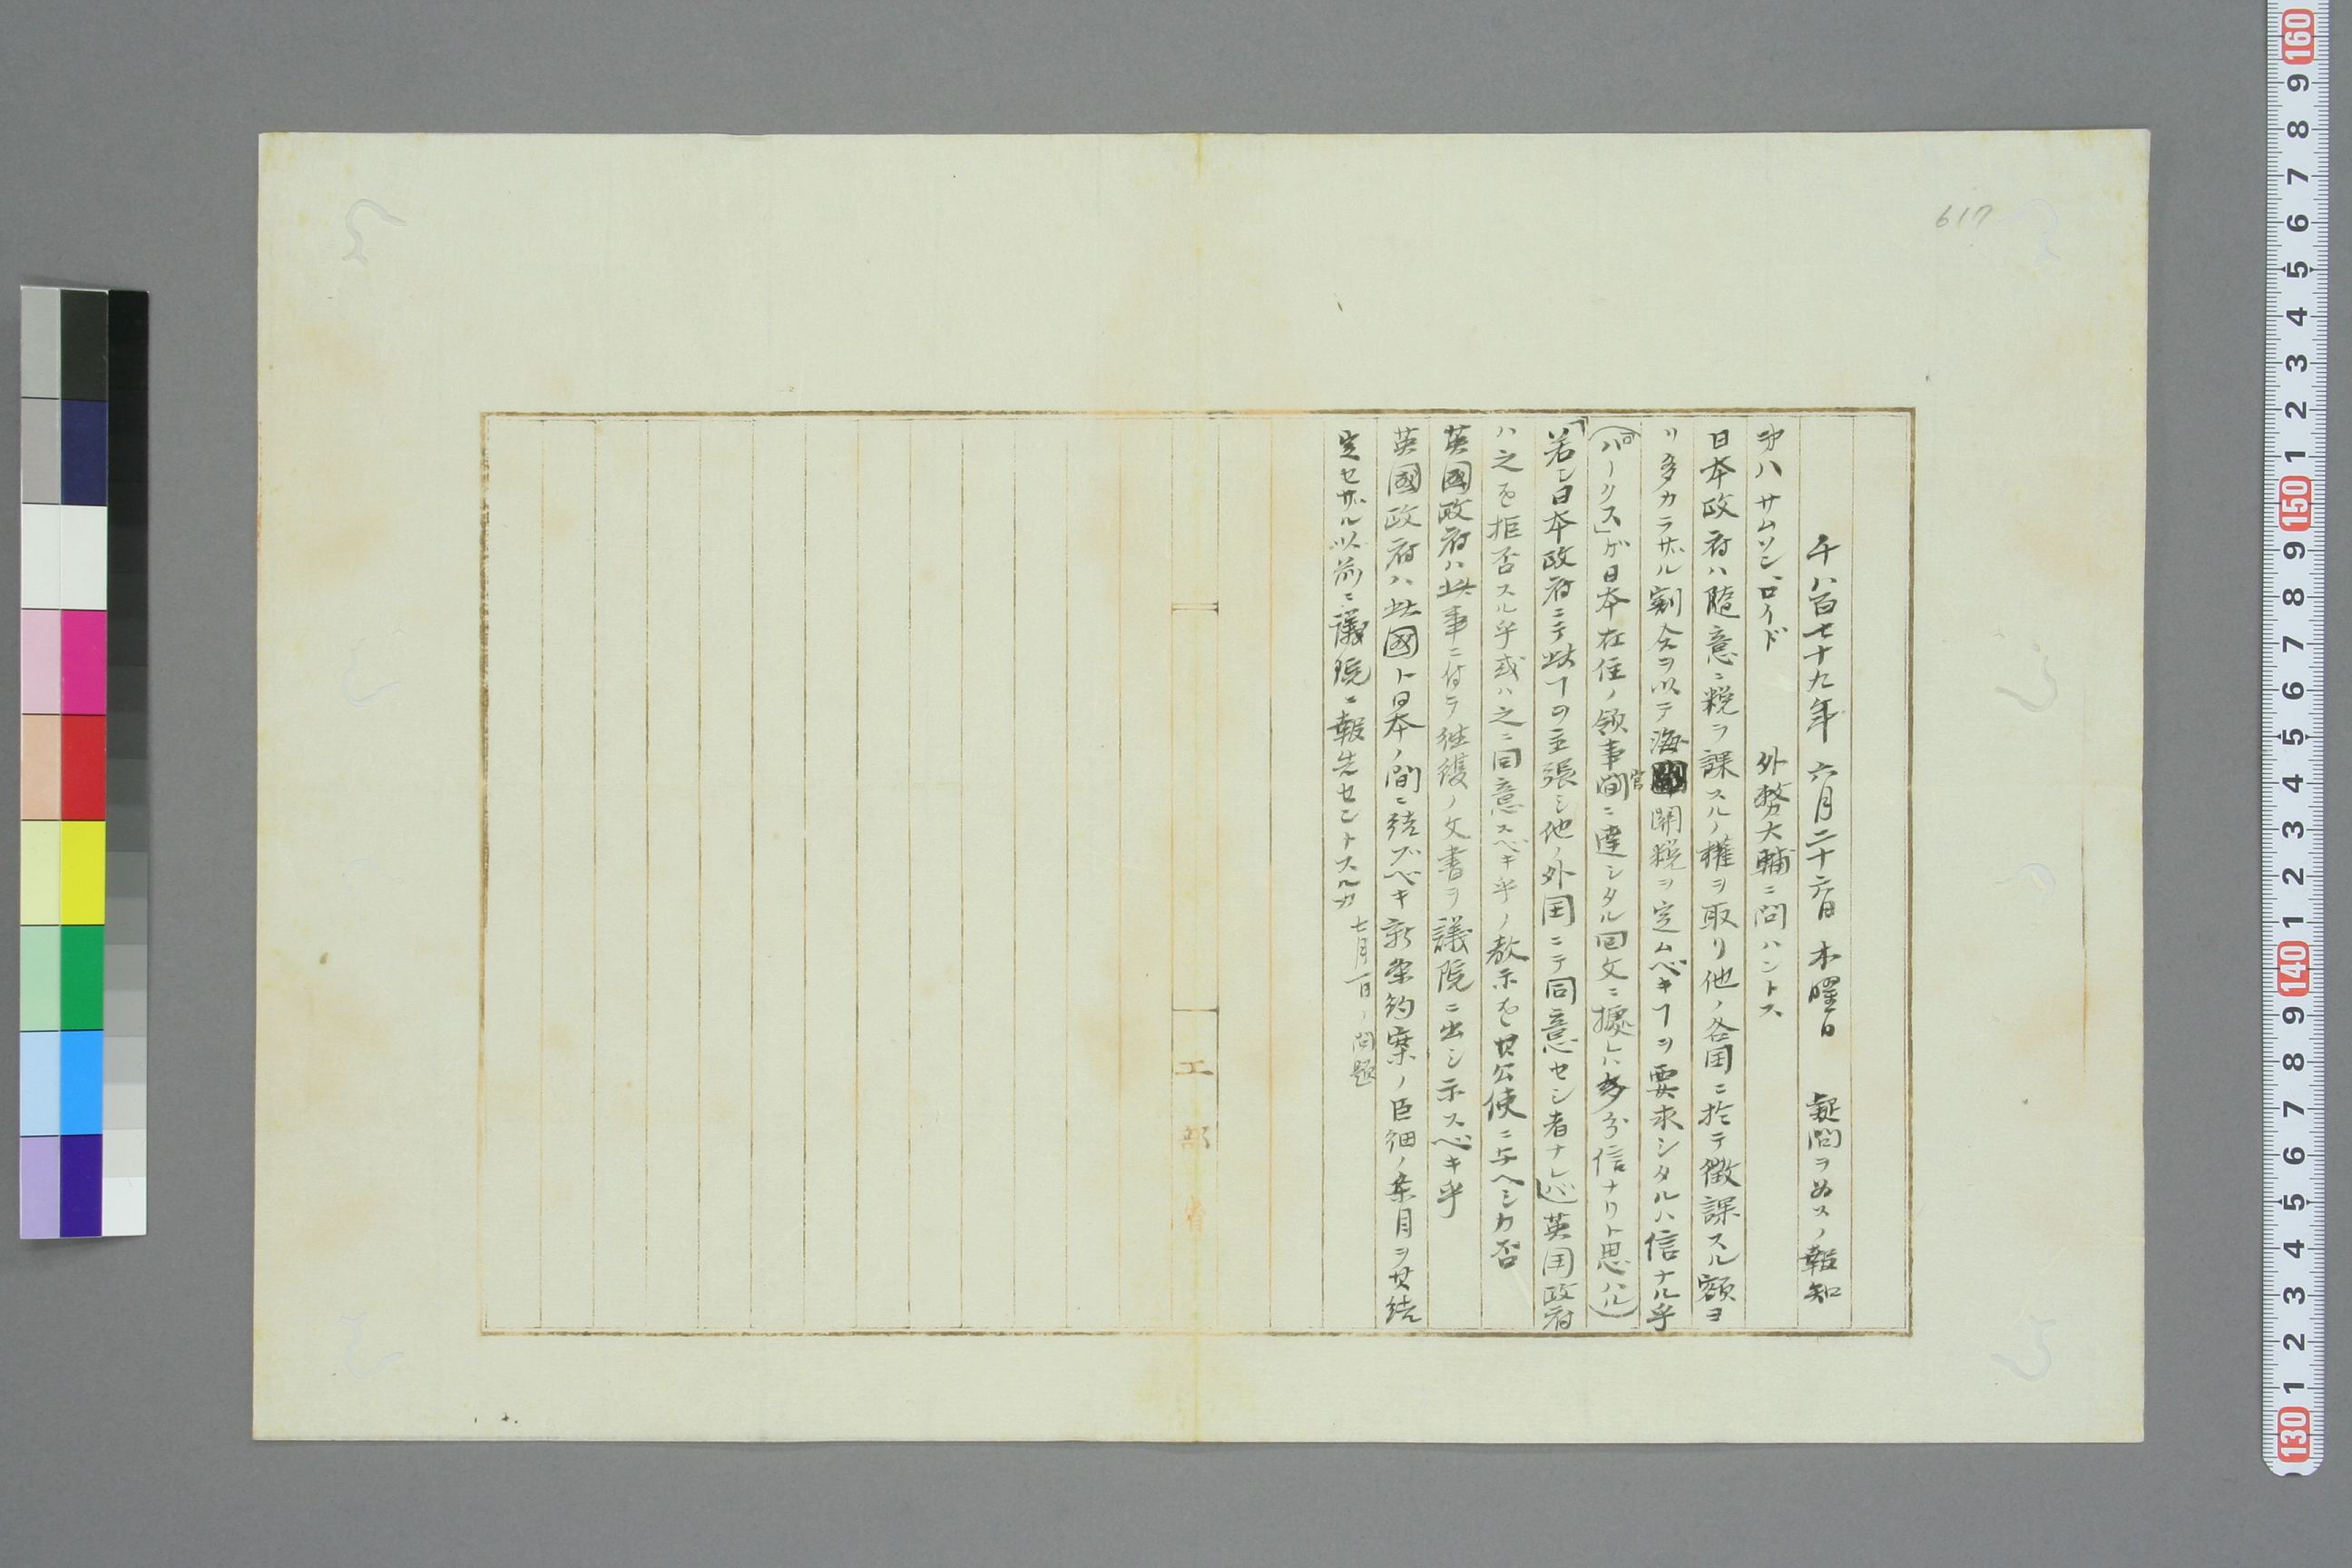 617
千八百七十九年 六月二十六日 木曜日 疑問ヲ為スノ報知
サムソン、ロイド 外務大輔ニ問ハントス
日本政府ハ随意ニ税ヲ課スルノ権ヲ取リ他ノ各国ニ於テ徴課スル額ヨ
リ多カラザル割合ヲ以テ海関税ヲ定ムベキヿヲ要求シタルハ信ナル乎
ハークス」ガ日本在住ノ領事官間ニ達シタル回文ニ據レハ多分信ナリト思ハル)
「若シ日本政府ニテ此ヿヲ主張シ他ノ外国ニテ同意セシ者ナレバ英国政府
ハ之を拒否スル乎或ハ之ニ同意スベキ乎ノ教示を其公使ニ与ヘシカ否
英國政府ハ此事ニ付テ往復ノ文書ヲ議院ニ出シ示スベキ乎
英國政府ハ此國ト日本ノ間ニ結ブベキ新条約案ノ巨細ノ条目ヲ其結
定セザル以前ニ議院ニ報告セントスルカ 七月一日ノ問題
工部省
160
9
8
7
6
5
4
3
2
1
150
9
8
7
6
5
4
3
2
1
140
9
8
7
6
5
4
3
2
1
130